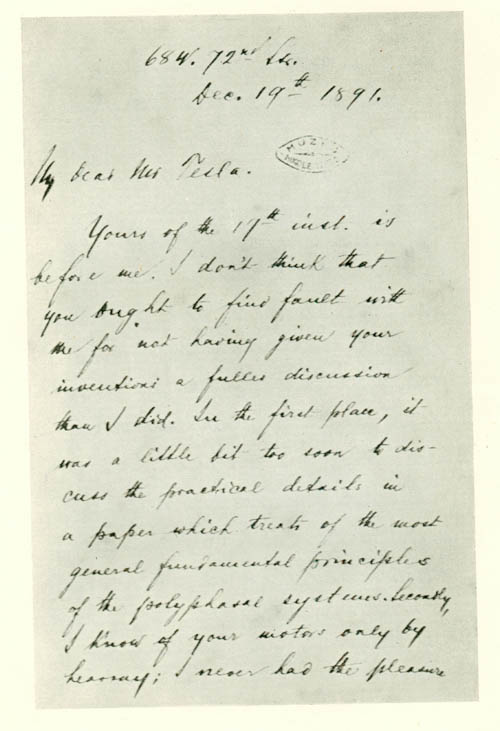 684. 72nd Str.
Dec. 19th 1891.
MUZEJ
My dear Mr Tesla.
Yours of the 17th inst. is
before me. I don't think that
you ought to find fault with
me for not having given your
inventions a fuller discussion
than I did. In the first place, it
was a little bit too soon to dis-
cuss the practical details in
a paper which treats of the most
general fundamental principles
of the polyphasal systems. Secondly,
I know of your motors only by
hearsay; I never had the pleasure